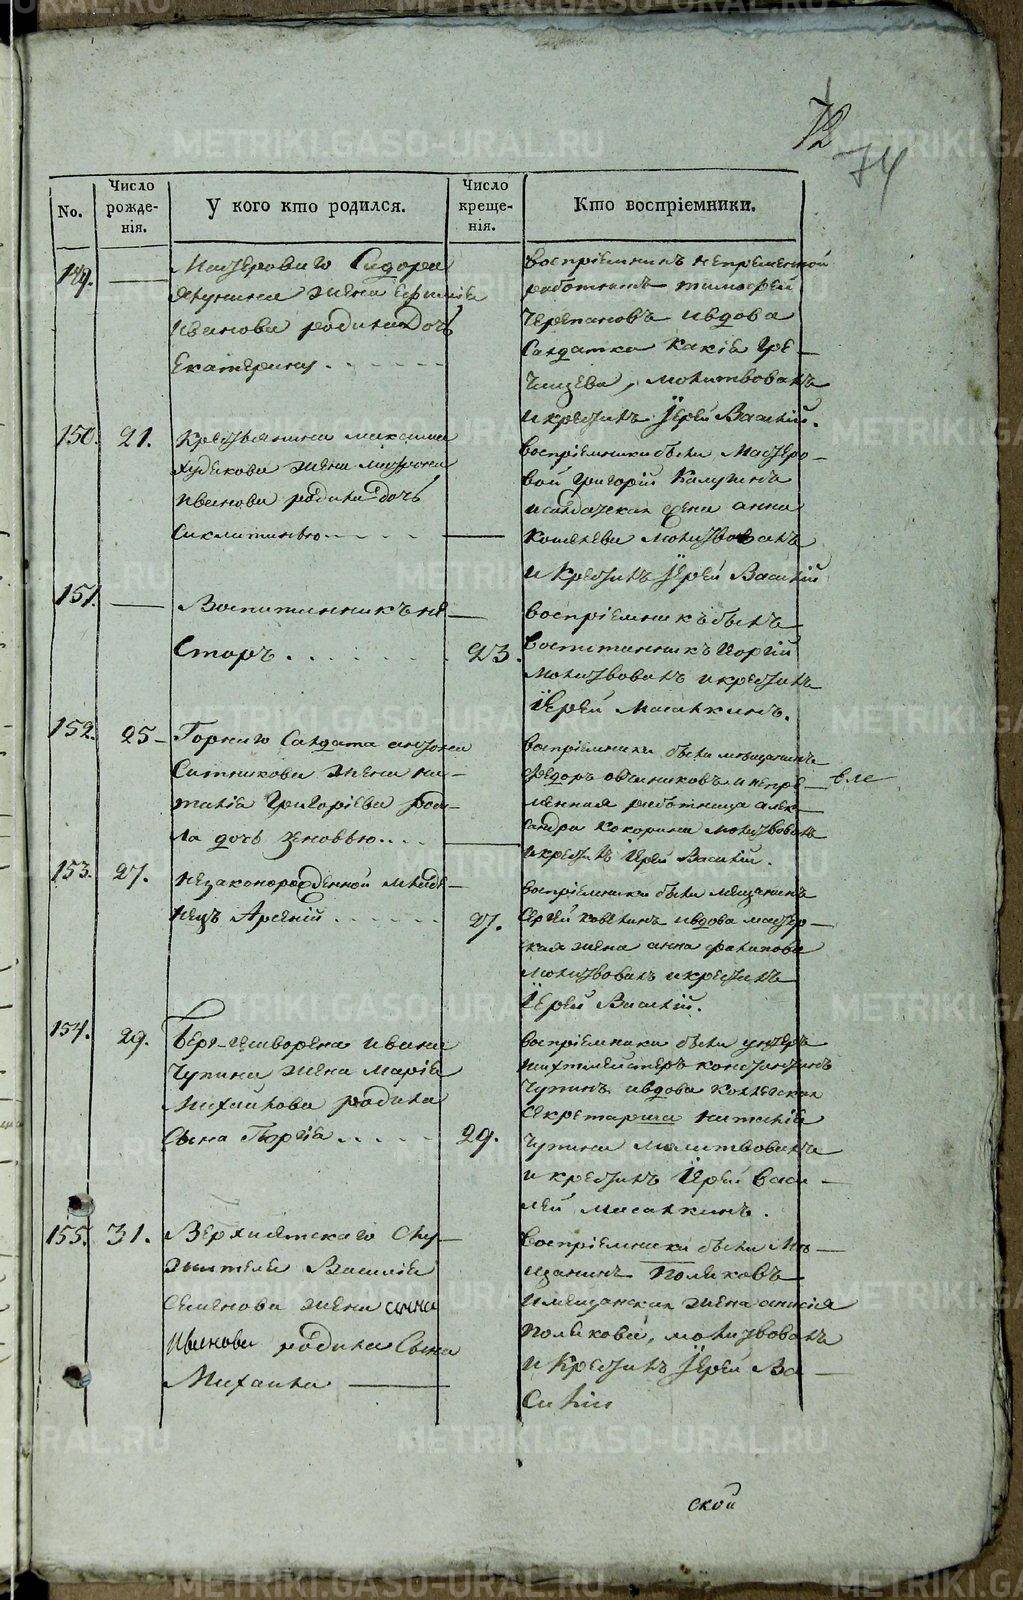 72
74
No.
Число рожде-нія.
У кого кто родился.
Число креще-нія.
Кто воспріемники.
149.
Мастероваго Сидора
жена Ефимія
Иванова родила дочь
Екатерину
воспріемникъ непременной
работникъ Тимофей
Черепановъ ивдова
Солдатка
молитвовалъ
икрестилъ Іерей Василій.
150. 21.
Крестьянина Максима
жена Матрона
Иванова родила дочь
Сиклитинью
воспріемники были Масте́ро-
вой Григорій Калугинъ
исолдатская жена анна
Кошелева молитвовалъ
и крестилъ Іерей Василій
151.
Воспитанникъ не
сторъ
23.
воспріемникъ былъ
воспитанникъ
молитвовалъ икрестилъ
Іерей
152. 25
Горнаго Солдата антона
Ситникова жена на-
талія Григоріева роди-
ла дочь Зѣновью
воспріемники были мѣщанинъ
Федоръ овчиниковъ инепре-
менная работница алек-
сандра Кокорина молитвовалъ
икрестилъ Іерей Василій.
вле
153. 27.
незаконорожденной младе-
нецъ Арсеній
27.
воспріемники были мещанинъ
Сергей ивдова мастер-
ская жена анна филипова
молитвовалъ икрестилъ
Іерей Василій.
154. 29.
Берггешворена ивана
Чупина жена марія
Михайлова родила
сына Георгія
29.
воспріемники были унтеръ
шихтмейстеръ констянтинъ
Чупинъ ивдова колежская
секретарша наталія
Чупина молитвовалъ
и крестилъ Іерей васи-
лей
155. 31.
Верхнятскаго слу-
жителя Василія
Семенова жена анна
Иванова родила Сына
Михаила
воспріемники были Мѣ-
щанинъ Поляковъ
имещанская жена анисія
Полякова, молитвовалъ
и Крестилъ Іерей Ва-
силій
ской
METRIKI.GASO-URAL.RU